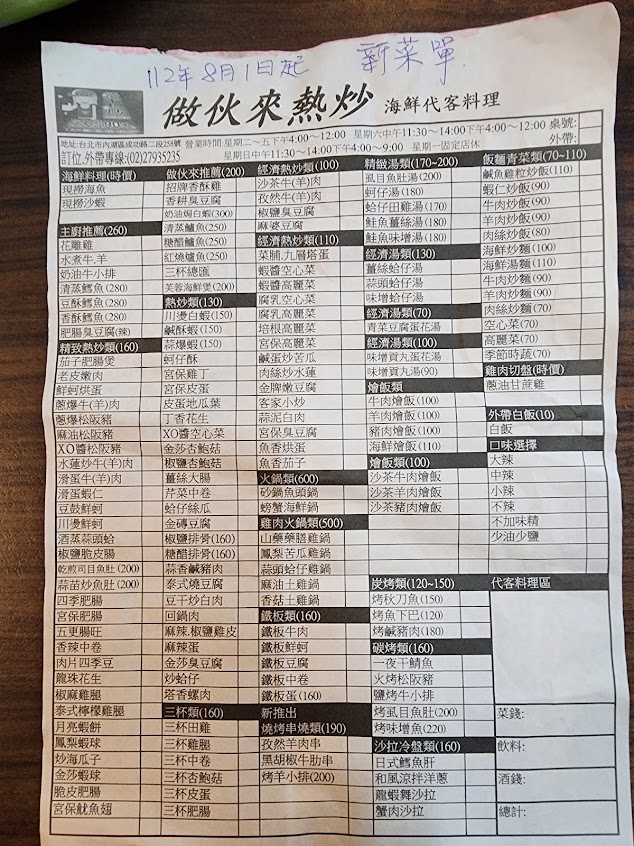 112年8月1日起 新菜單
做伙來熱炒 海鮮代客料理
地址:台北市內湖區成功路二段258號 營業時間:星期二~五下午4:00~12:00 星期六中午11:30~14:00下午4:00~12:00 桌號:
訂位.外帶專線:(02)27935235 星期日中午11:30~14:00下午4:00~9:00 星期一固定店休 外帶:
海鮮料理(時價)
現撈海魚
現撈沙蝦
主廚推薦(260)
花雕雞
水煮牛.羊
奶油牛小排
清蒸鱈魚(280)
豆酥鱈魚(280)
香酥鱈魚(280)
肥腸臭豆腐(辣)
精致熱炒類(160)
茄子肥腸煲
老皮嫩肉
鮮蚵烘蛋
蔥爆牛(羊)肉
蔥爆松阪豬
麻油松阪豬
XO醬松阪豬
水蓮炒牛(羊)肉
滑蛋牛(羊)肉
滑蛋蝦仁
豆鼓鮮蚵
川燙鮮蚵
酒蒸蒜頭蛤
椒鹽脆皮腸
乾煎司目魚肚(200)
蒜苗炒魚肚(200)
四季肥腸
宮保肥腸
五更腸旺
香辣中卷
肉片四季豆
龍珠花生
椒麻雞腿
泰式檸檬雞腿
月亮蝦餅
鳳梨蝦球
炒海瓜子
金沙蝦球
脆皮肥腸
宮保魷魚翅
做伙來推薦(200)
招牌香酥雞
香耕臭豆腐
奶油焗白蝦(300)
清蒸鱸魚(250)
糖醋鱸魚(250)
紅燒鱸魚(250)
三杯總匯
芙蓉海鮮煲(200)
熱炒類(130)
川燙白蝦(150)
鹹酥蝦(150)
蒜爆蝦(150)
蚵仔酥
宮保雞丁
宮保皮蛋
皮蛋地瓜葉
丁香花生
XO醬空心菜
金莎杏鮑菇
椒鹽杏鮑菇
薑絲大腸
芹菜中卷
蛤仔絲瓜
金磚豆腐
椒鹽排骨(160)
糖醋排骨(160)
蒜香鹹豬肉
泰式燒豆腐
豆干炒白肉
回鍋肉
麻辣.椒鹽雞皮
麻辣蛋
金莎臭豆腐
炒蛤仔
塔香螺肉
三杯類(160)
三杯田雞
三杯雞腿
三杯中卷
三杯杏鮑菇
三杯皮蛋
三杯肥腸
經濟熱炒類(100)
沙茶牛(羊)肉
孜然牛(羊)肉
椒鹽臭豆腐
麻婆豆腐
經濟熱炒類(110)
菜脯.九層塔蛋
蝦醬空心菜
蝦醬高麗菜
腐乳空心菜
腐乳高麗菜
培根高麗菜
宮保高麗菜
鹹蛋炒苦瓜
肉絲炒水蓮
金牌嫩豆腐
客家小炒
蒜泥白肉
宮保臭豆腐
魚香烘蛋
魚香茄子
火鍋類(600)
砂鍋魚頭鍋
螃蟹海鮮鍋
雞肉火鍋類(500)
山藥藥膳雞鍋
鳳梨苦瓜雞鍋
蒜頭蛤仔雞鍋
麻油土雞鍋
香菇土雞鍋
鐵板類(160)
鐵板牛肉
鐵板鮮蚵
鐵板豆腐
鐵板中卷
鐵板蛋(160)
新推出
燒烤串燒類(190)
孜然羊肉串
黑胡椒牛肋串
烤羊小排(200)
精緻湯類(170~200)
虱目魚肚湯(200)
蚵仔湯(180)
蛤仔田雞湯(170)
鮭魚薑絲湯(180)
鮭魚味增湯(180)
經濟湯類(130)
薑絲蛤仔湯
蒜頭蛤仔湯
味增蛤仔湯
經濟湯類(70)
青菜豆腐蛋花湯
經濟湯類(100)
味增貢丸蛋花湯
味增貢丸湯(90)
燴飯類
牛肉燴飯(100)
羊肉燴飯(100)
豬肉燴飯(100)
海鮮燴飯(110)
燴飯類(100)
沙茶牛肉燴飯
沙茶羊肉燴飯
沙茶豬肉燴飯
炭烤類(120~150)
烤秋刀魚(150)
烤魚下巴(120)
烤鹹豬肉(180)
碳烤類(160)
一夜干鯖魚
火烤松阪豬
鹽烤牛小排
烤虱目魚肚(200)
烤味增魚(220)
沙拉冷盤類(160)
日式鱈魚肝
和風涼拌洋蔥
龍蝦舞沙拉
蟹肉沙拉
飯麵青菜類(70~110)
鹹魚雞粒炒飯(110)
蝦仁炒飯(90)
牛肉炒飯(90)
羊肉炒飯(90)
肉絲炒飯(80)
海鮮炒麵(100)
海鮮湯麵(110)
牛肉炒麵(90)
羊肉炒麵(90)
肉絲炒麵(70)
空心菜(70)
高麗菜(70)
季節時蔬(70)
雞肉切盤(時價)
蔥油甘蔗雞
外帶白飯(10)
白飯
口味選擇
大辣
中辣
小辣
不辣
不加味精
少油少鹽
代客料理區
菜錢:
飲料:
酒錢:
總計: